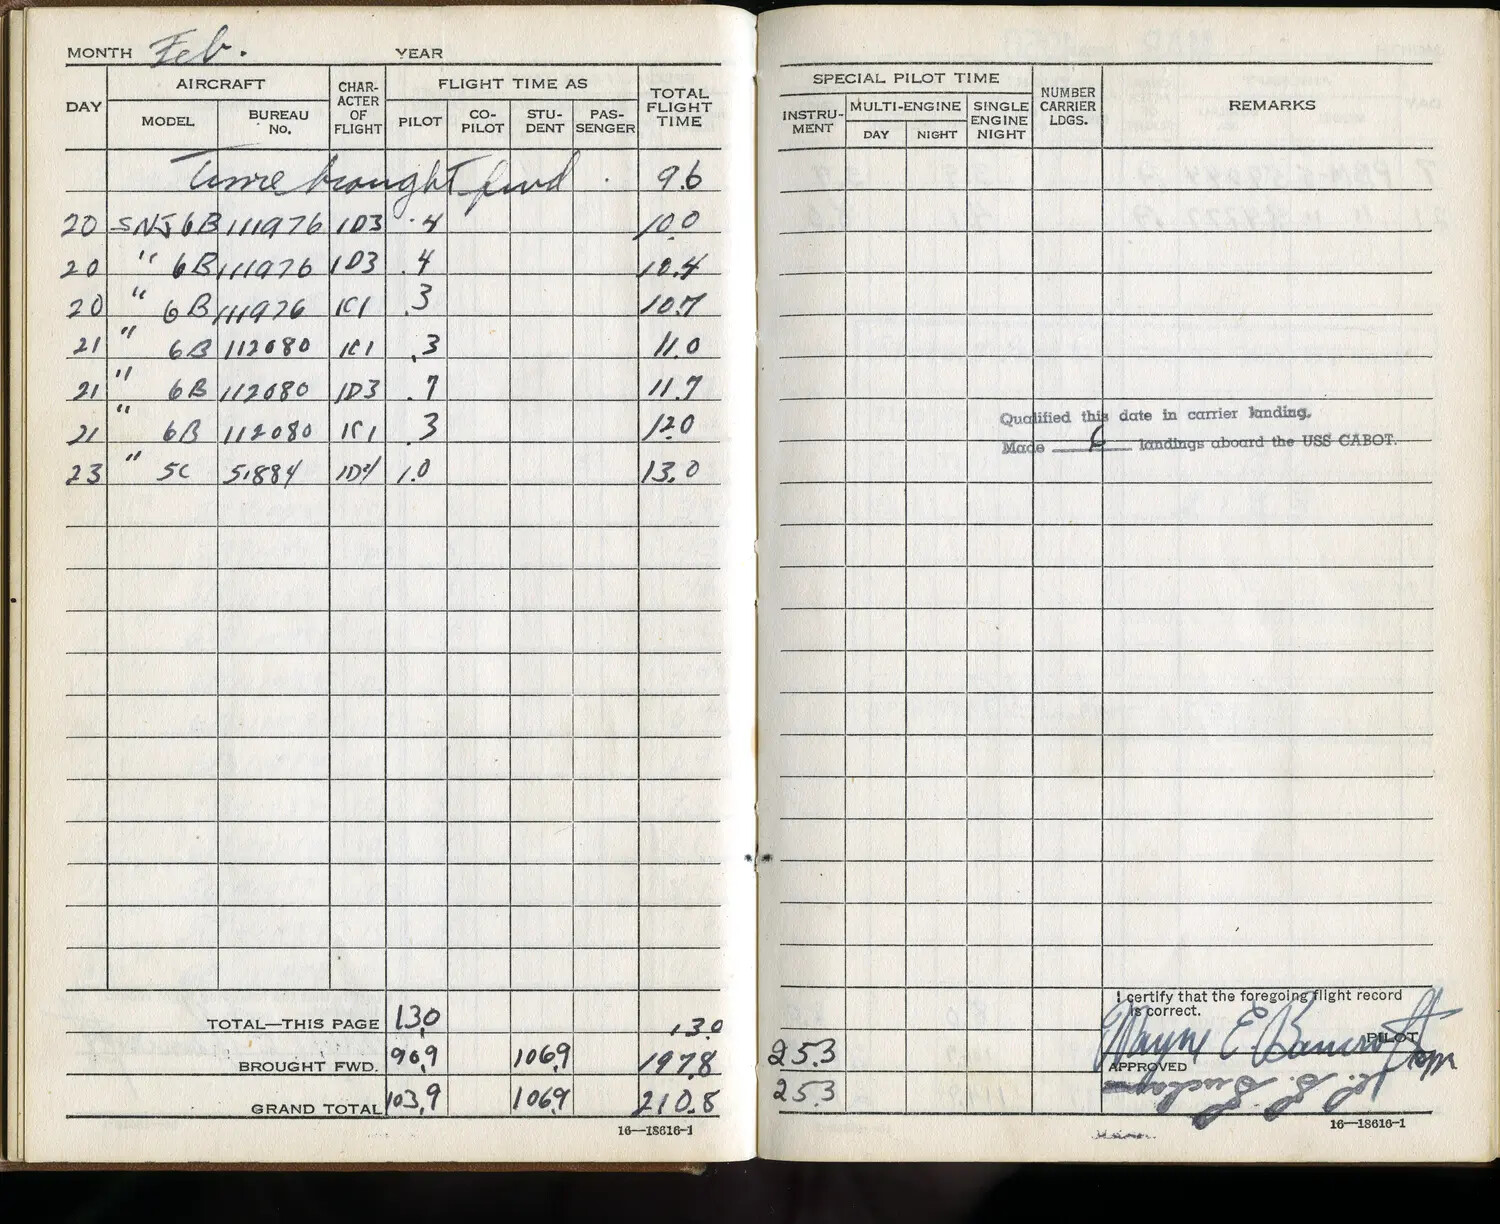 MONTH Feb. YEAR
DAY AIRCRAFT CHAR-ACTER OF FLIGHT FLIGHT TIME AS TOTAL FLIGHT TIME
MODEL BUREAU No. PILOT CO-PILOT STU-DENT PAS-SENGER
Time brought fwd . 9.6
20 SNJ 6B 111976 1D3 .4 10.0
20 " 6B 111976 1D3 .4 10.4
20 " 6B 111976 1C1 .3 10.7
21 " 6B 112080 1C1 .3 11.0
21 " 6B 112080 1D3 .7 11.7
21 " 6B 112080 1C1 .3 12.0
23 " 5C 51884 1D4 1.0 13.0
TOTAL—THIS PAGE 13.0 13.0
BROUGHT FWD. 90.9 106.9 197.8
GRAND TOTAL 103.9 106.9 210.8
16—18616-1
SPECIAL PILOT TIME NUMBER CARRIER LDGS. REMARKS
INSTRU-MENT MULTI-ENGINE SINGLE ENGINE NIGHT
DAY NIGHT
Qualified this date in carrier landing.
Made 6 landings aboard the USS CABOT.
I certify that the foregoing flight record
is correct.
Wayne E. PILOT
25.3
APPROVED
25.3
16—18616-1